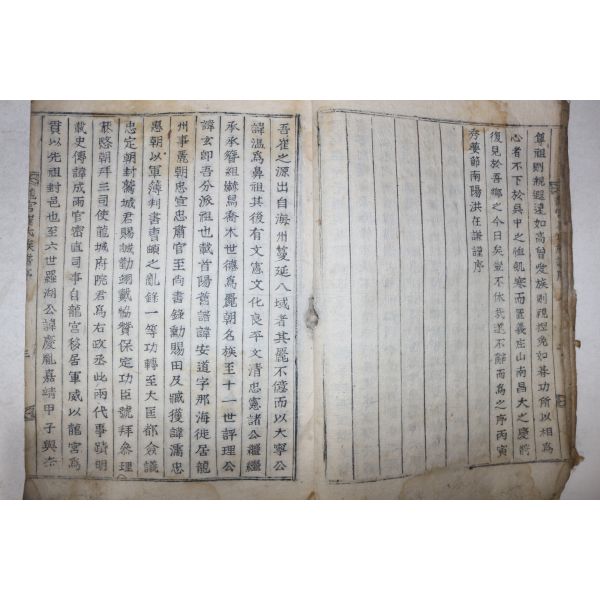 尊祖則視遐遠如高曾愛族則視袒免如朞功所以相爲
心者不下於吳中之恤飢寒而置義庄山南昌大之慶將
復見於吾鄕之今日矣豈不休哉遂不辭而爲之序丙寅
秀葽節南陽洪在謙謹序
吾崔之源出自海州蔓延八域者其麗不億而以大寧公
諱溫爲鼻祖其後有文憲文化良平文淸忠憲諸公繼繼
承承簪組赫舃喬木世德爲麗朝名族至十一世評理公
諱玄卽吾分派祖也載首陽舊譜諱安道字那海徙居龍
州事麗朝忠宣忠肅官至尙書錄勳賜田及臧獲諱濡忠
惠朝以軍簿判書曹頔之亂錄一等功轉至大匡都僉議
忠定朝封鷲城君賜誠勤翊戴協贊保定功臣號拜叅理
恭愍朝拜三司使龍城府院君爲右政丞此兩代事蹟明
載史傳諱成雨官密直司事自龍宮移居軍威以龍宮爲
貫以先祖封邑也至六世羅湖公諱慶胤嘉靖甲子與